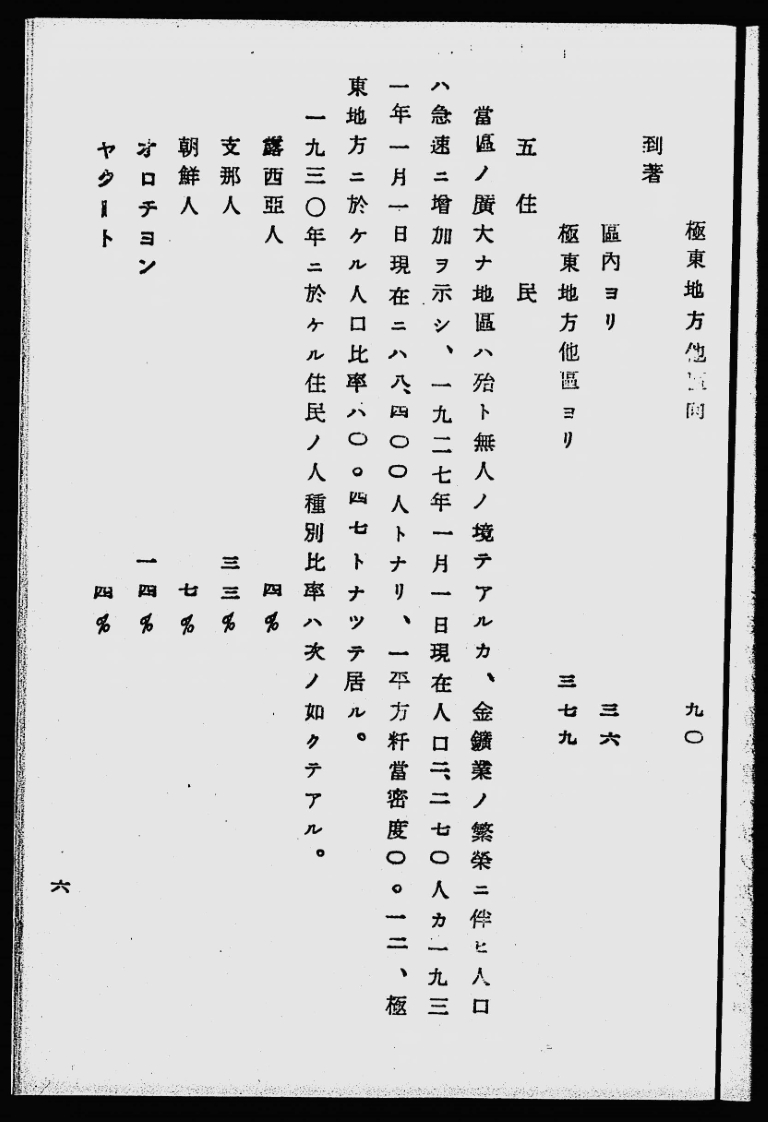 極東地方他區向 九〇
到著
區內ヨリ 三六
極東地方他區ヨリ 三七九
五 住 民
當區ノ廣大ナ地區ハ殆ト無人ノ境テアルカ、金鑛業ノ繁榮ニ伴ヒ人口
ハ急速ニ增加ヲ示シ、一九二七年一月一日現在人口二、二七〇人カ一九三
一年一月一日現在ニハ八、四〇〇人トナリ、一平方粁當密度〇。一二、極
東地方ニ於ケル人口比率ハ〇。四七トナツテ居ル。
一九三〇年ニ於ケル住民ノ人種別比率ハ次ノ如クテアル。
露西亞人 四%
支那人 三三%
朝鮮人 七%
オロチヨン 一四%
ヤクート 四%
六